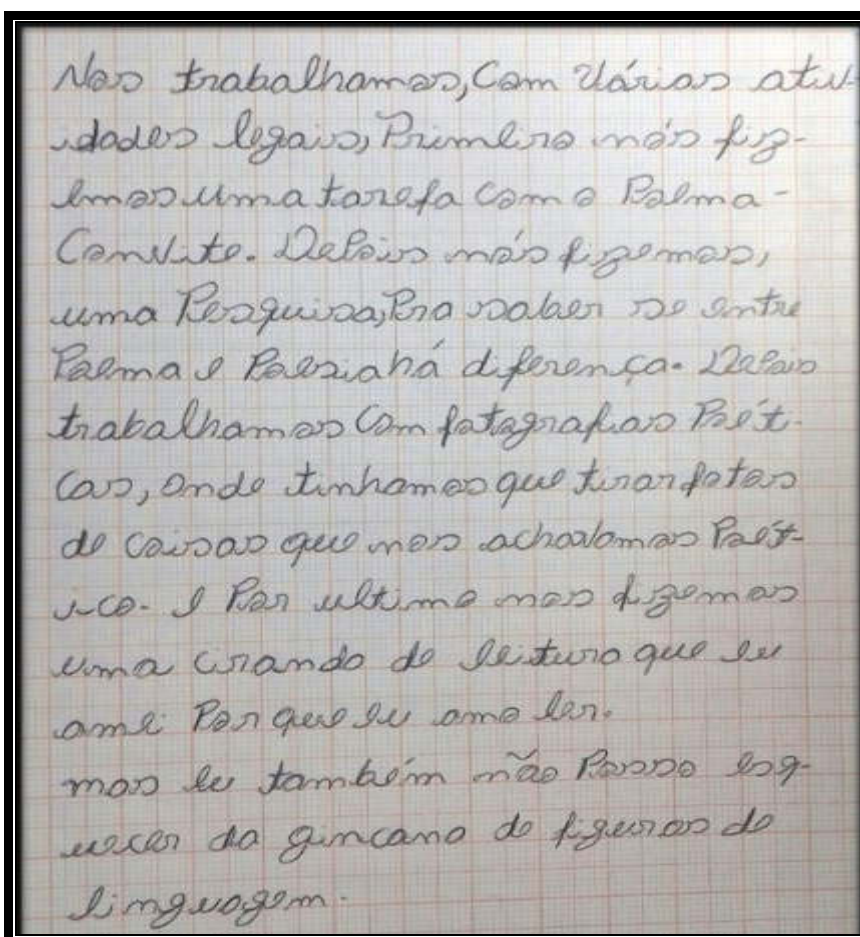 Nos trabalhamos, Com Várias ativ-
idades legais, Primeiro nós fiz-
emos uma tarefa com o Poema-
Convite. Depois nós fizemos,
uma Pesquisa, Pra saber se entre
Poema e Poesia há diferença. Depois
trabalhamos Com fotografias Poét-
cas, onde tinhamos que tirar fotos
de coisas que nos achavamos Poét-
ico. E Por ultimo nos fizemos
uma ciranda de leitura que eu
amei Por que eu amo ler.
mas eu também não Posso esq-
uecer da gincana de figuras de
linguagem.